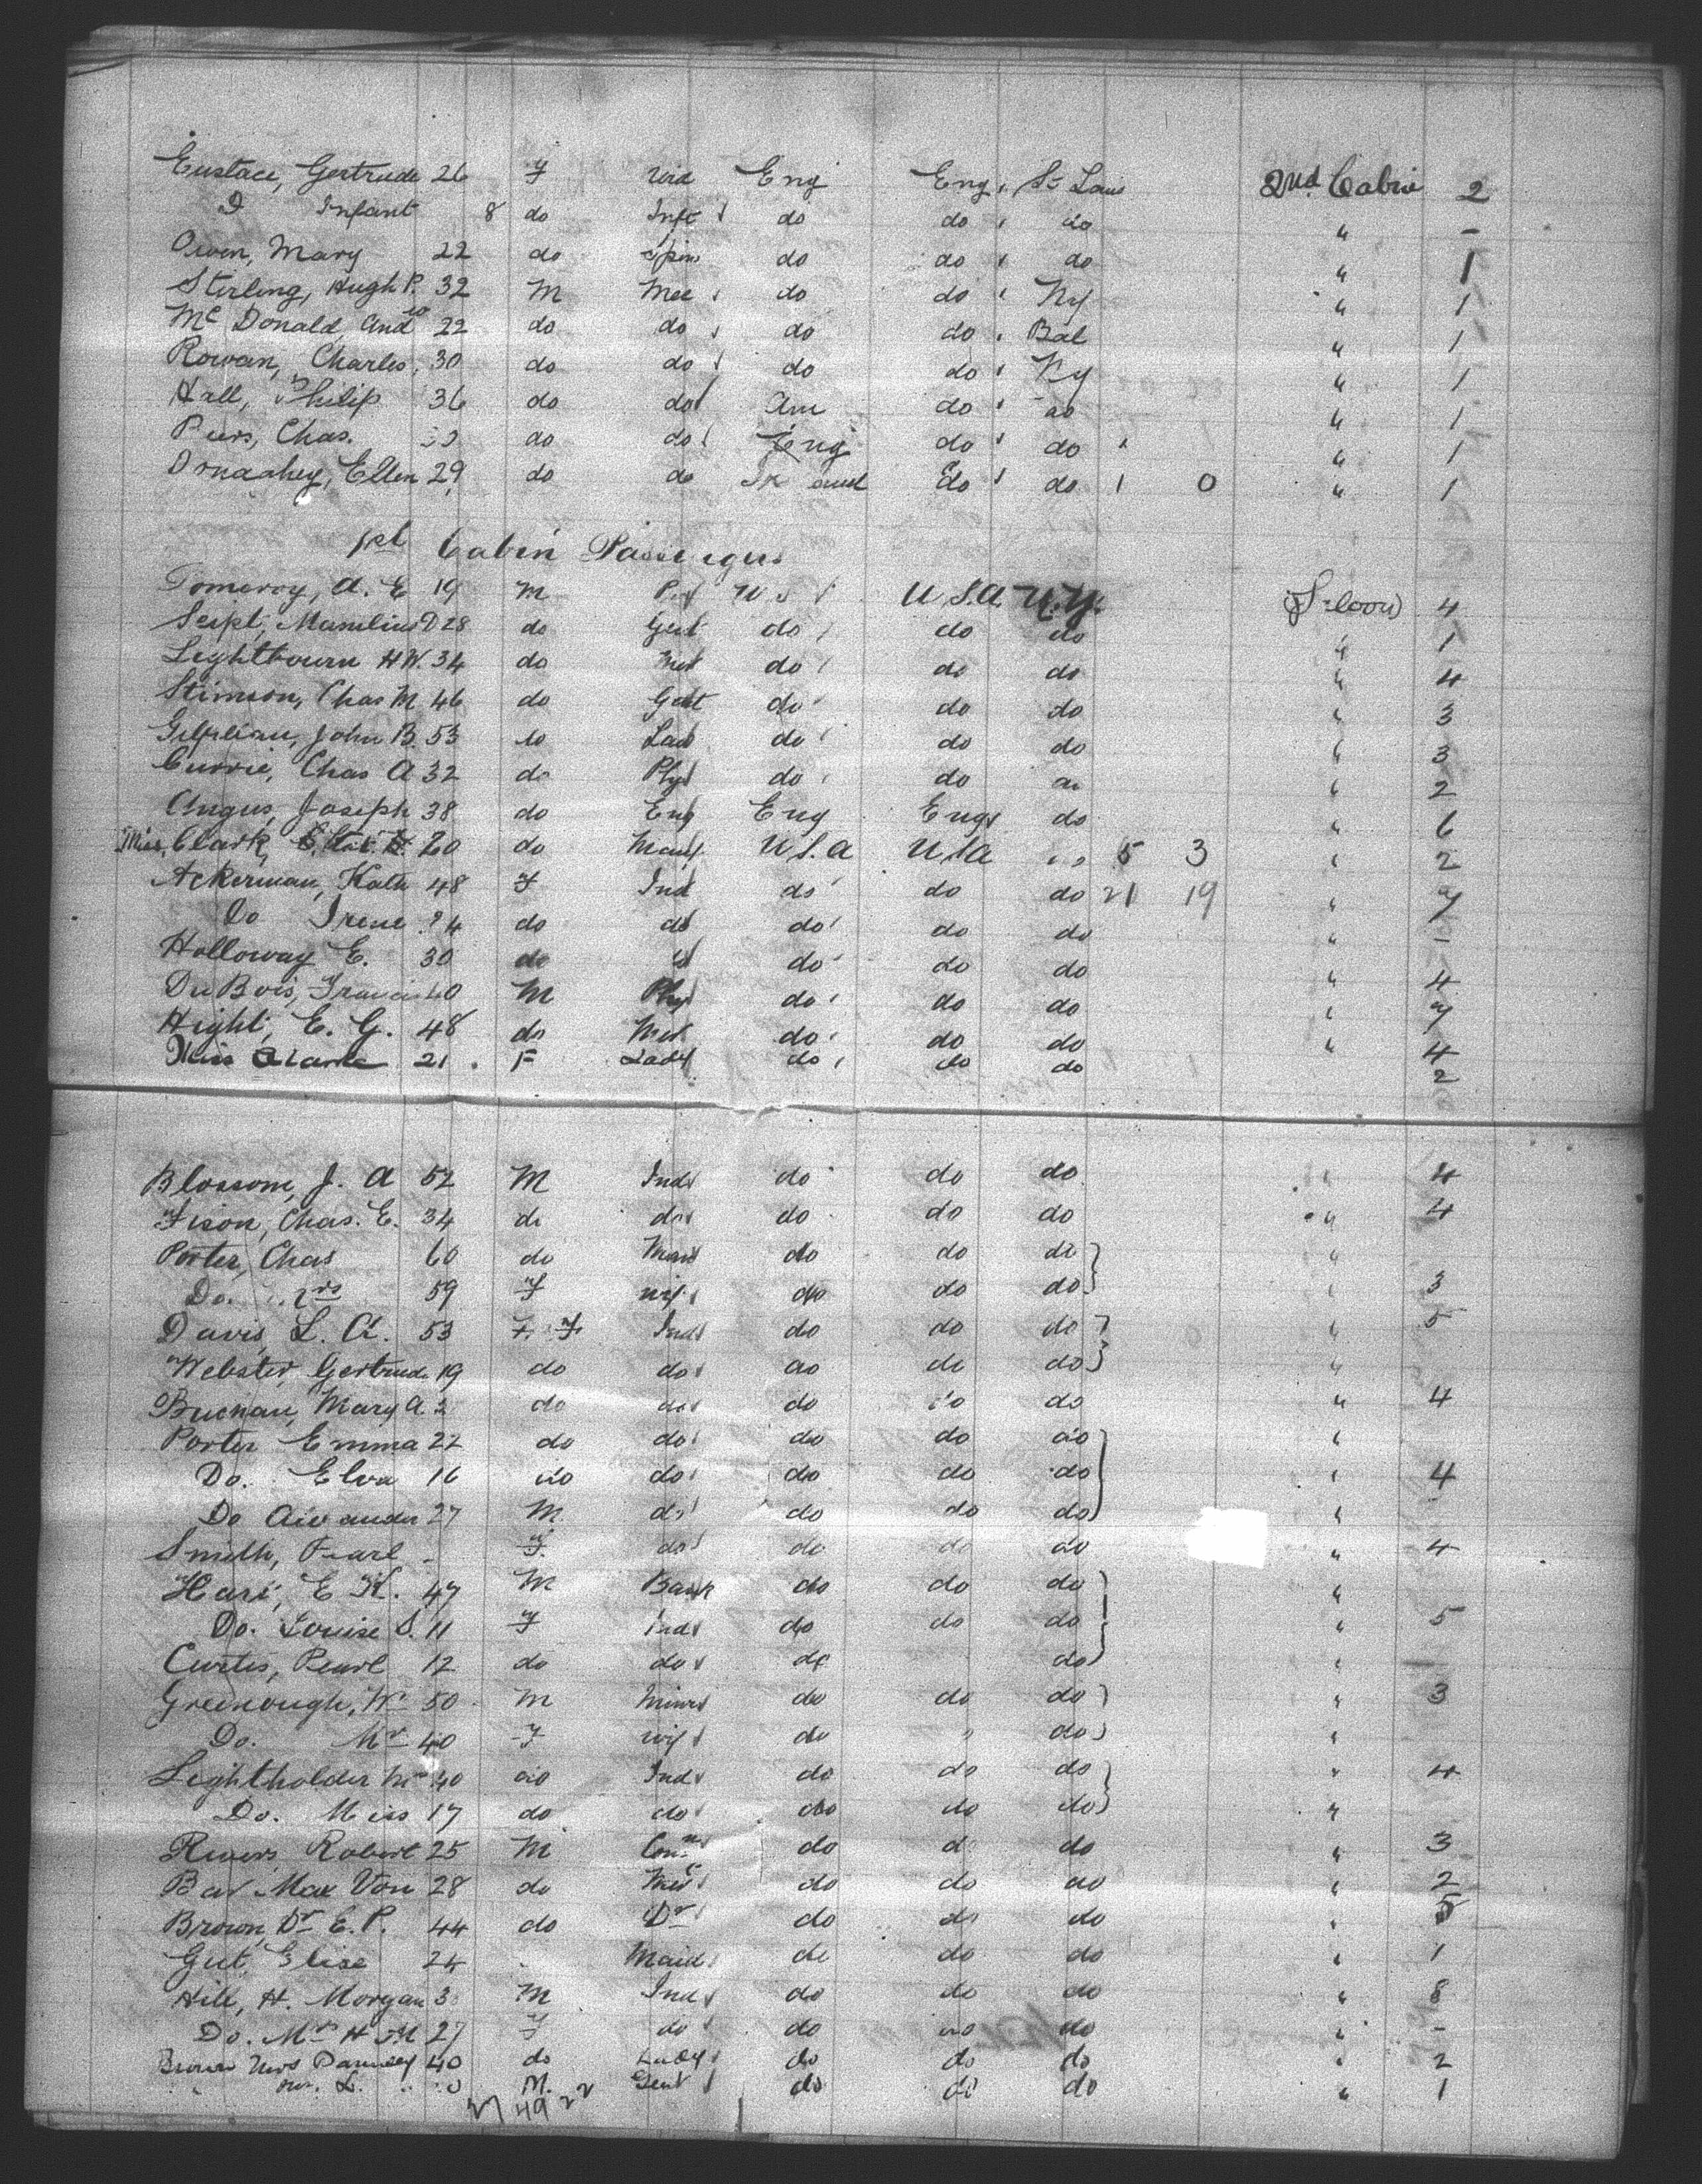 Eustace, Gertrude 26 F Eng Eng St Louis 2nd Cabin 2
Infant 8 do Inft do do do " -
Owen, Mary 22 do Spin do do do " 1
Sterling, Hugh P. 32 M Mec do do Ny " 1
Mc Donald And 22 do do do do Bal " 1
Rowan, Charles 30 do do do do Ny " 1
Hall, Philip 36 do do Am do do " 1
Piers, Chas. do do Eng do do " 1
Ellen 29 do do do do 1 0 " 1
1st Cabin Passengers
Pomeroy, A. E 19 M U S U.S.A. N.Y. (Saloon) 4
Seipt, D 28 do Gent do do do " 1
Lightbourn H W. 34 do Met do do do " 4
Stimson, Chas M 46 do Gent do do do " 3
Gilfillan, John B. 53 do Law do do do " 3
Currie, Chas A 32 do Phys do do do " 2
Angus, Joseph 38 do Eng Eng Eng do " 6
Miss Clark, 20 do Manf U.S.A U.S.A do 5 3 " 2
Ackerman, Kath 48 F Ind do do do 21 19 " 7
Do Irene 24 do do do do do " -
Holloway E. 30 do do do do do " 4
Du Bois, Francis 40 M Phys do do do " 7
Hight, E. G. 48 do Met do do do " 4
Miss Clarke 21 F Lady do do do 2
Blossom, J. A 52 M Ind do do do " 4
Fison, Chas. E. 34 do do do do do " 4
Porter, Chas 60 do do do do "
Do. Mrs 59 F wif do do do " 3
Davis, L. A. 53 F Ind do do do " 5
Webster, Gertrude 19 do do do do do "
Mary A. 2 do do do do do " 4
Porter Emma 22 do do do do do "
Do. Elva 16 do do do do do " 4
Do 27 M do do do do "
Smith, Pearl - F. do do do do " 4
E K. 47 M Bank do do do "
Do. Louise S. 11 F Ind do do do " 5
Curtis, Pearl 12 do do do do "
Greenough, Wm 50 M Miner do do do " 3
Do. Mrs 40 F wif do " do "
Lightholder Mrs 40 do Ind do do do " 4
Do. Miss 17 do do do do do "
Robert 25 M do do do " 3
Bar Max Von 28 do do do do " 2
Brown, Dr E. P. 44 do Dr do do do " 5
Gut Elise 24 Maid do do do " 1
Hill, H. Morgan 3 M Ind do do do " 8
Do. Mrs H M 27 F do do do do " -
Brown Mrs 40 do Lady do do do " 2
" L. M. Gent do do do " 1
27 49 22